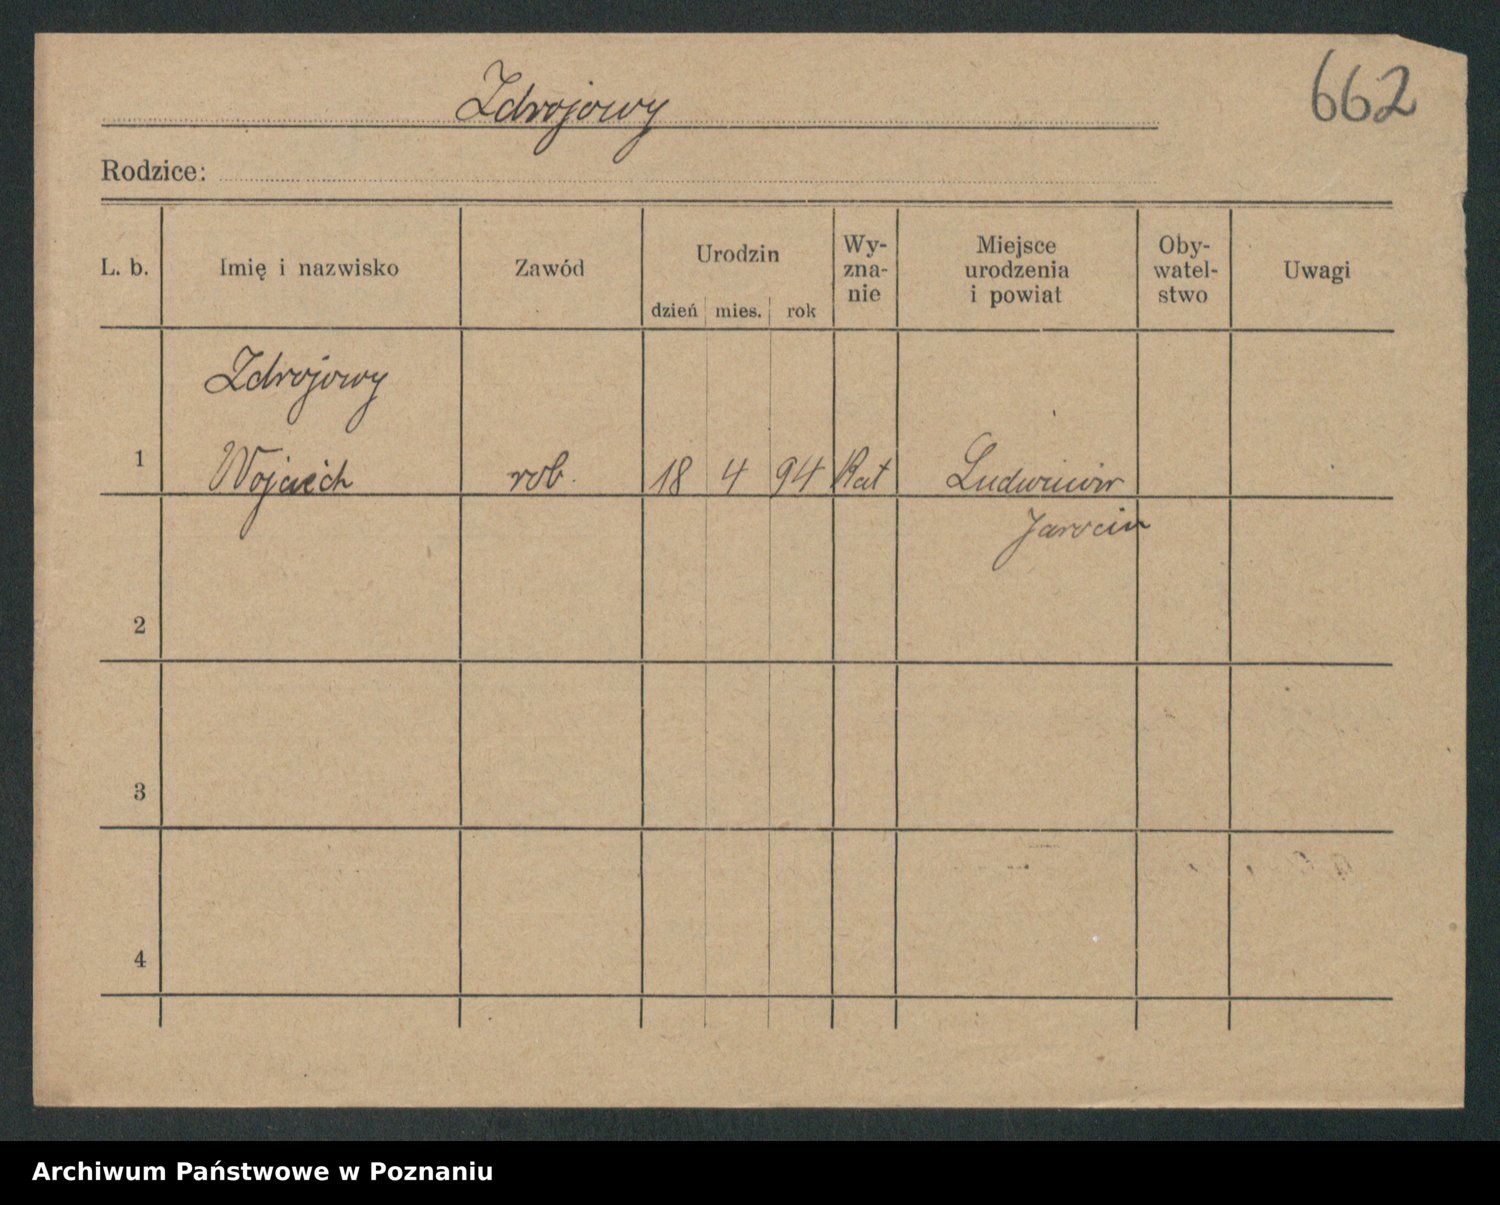 Zdrojowy
662
Rodzice:
L. b. Imię i nazwisko Zawód Urodzin dzień mies. rok Wy-zna-nie Miejsce urodzenia i powiat Oby-watel-stwo Uwagi
Zdrojowy
1 Wojciech rob. 18 4 94 Kat
Jarocin
2
3
4
Archiwum Państwowe w Poznaniu